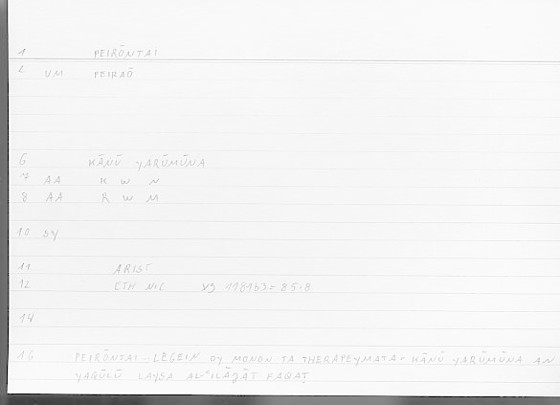 1 PEIRŌNTAI
2 UM PEIRAŌ
6 KĀNŪ YARŪMŪNA
7 AA K W N
8 AA R W M
10 SY
11 ARIST
12 ETH NIC VS 1181b3 = 85.8
14
15 PEIRŌNTAI - LEGEIN OY MONON TA THERAPEYMATA - KĀNŪ YARŪMŪNA AN
YAQŪLŪ LAYSA AL-ʿILĀǦĀT FAQAṬ